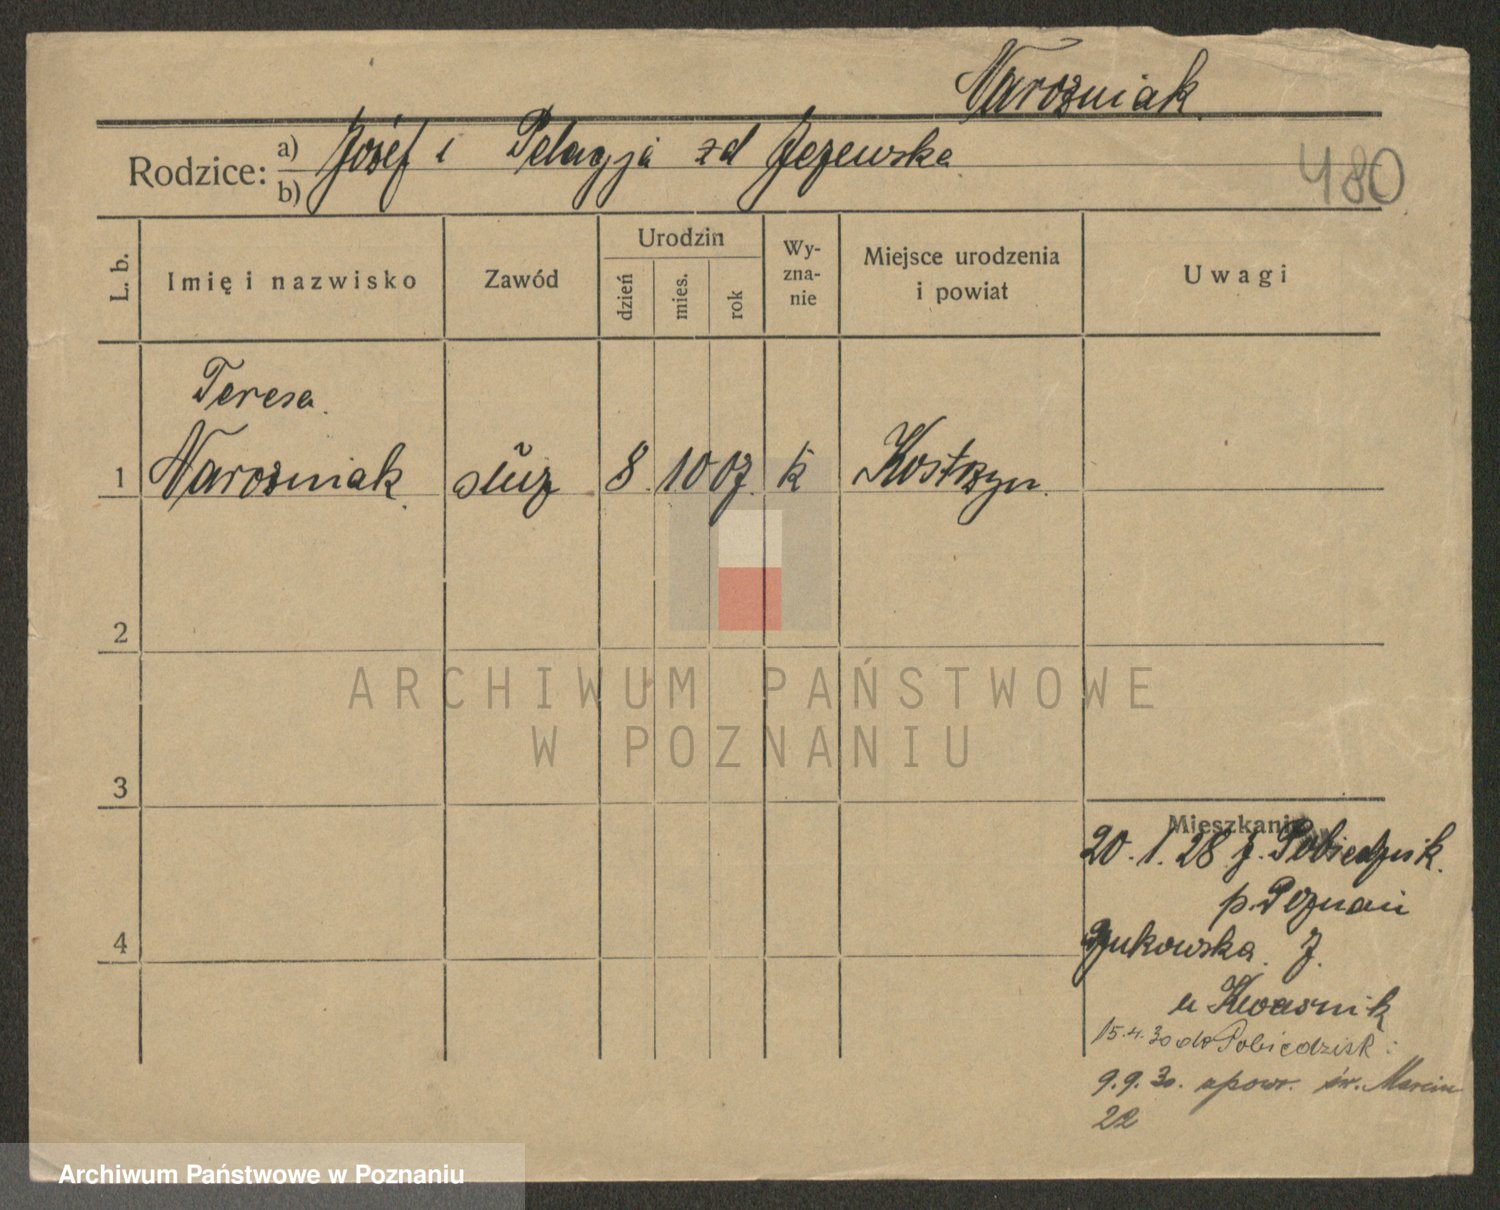 Narożniak
Rodzice: a) b) Józef i Pelagja zd Jeżewska
480
L. b.
Imię i nazwisko
Zawód
Urodzin
dzień
mies.
rok
Wy-
zna-
nie
Miejsce urodzenia
i powiat
Uwagi
Teresa
1 Narożniak służ 8. 10 07. k Kostrzyn.
2
ARCHIWUM PAŃSTWOWE
W POZNANIU
3
Mieszkanie
20. 1. 28 z. Pobiedzisk.
p. Poznań
4
Żukowska 7.
u Kwaśnik
15.4.30 do Pobiedzisk
9.9.30. spowr. św. Marcin
22
Archiwum Państwowe w Poznaniu